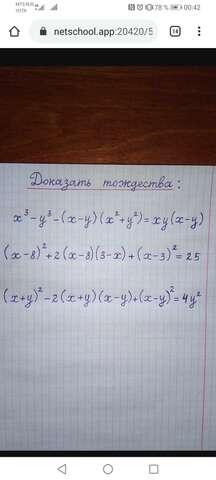 00:42
78 %
netschool.app:20420/5
14
Доказать тождества:
x³-y³-(x-y)(x²+y²)=xy(x-y)
(x-8)²+2(x-8)(3-x)+(x-3)²=25
(x+y)²-2(x+y)(x-y)+(x-y)²=4y²